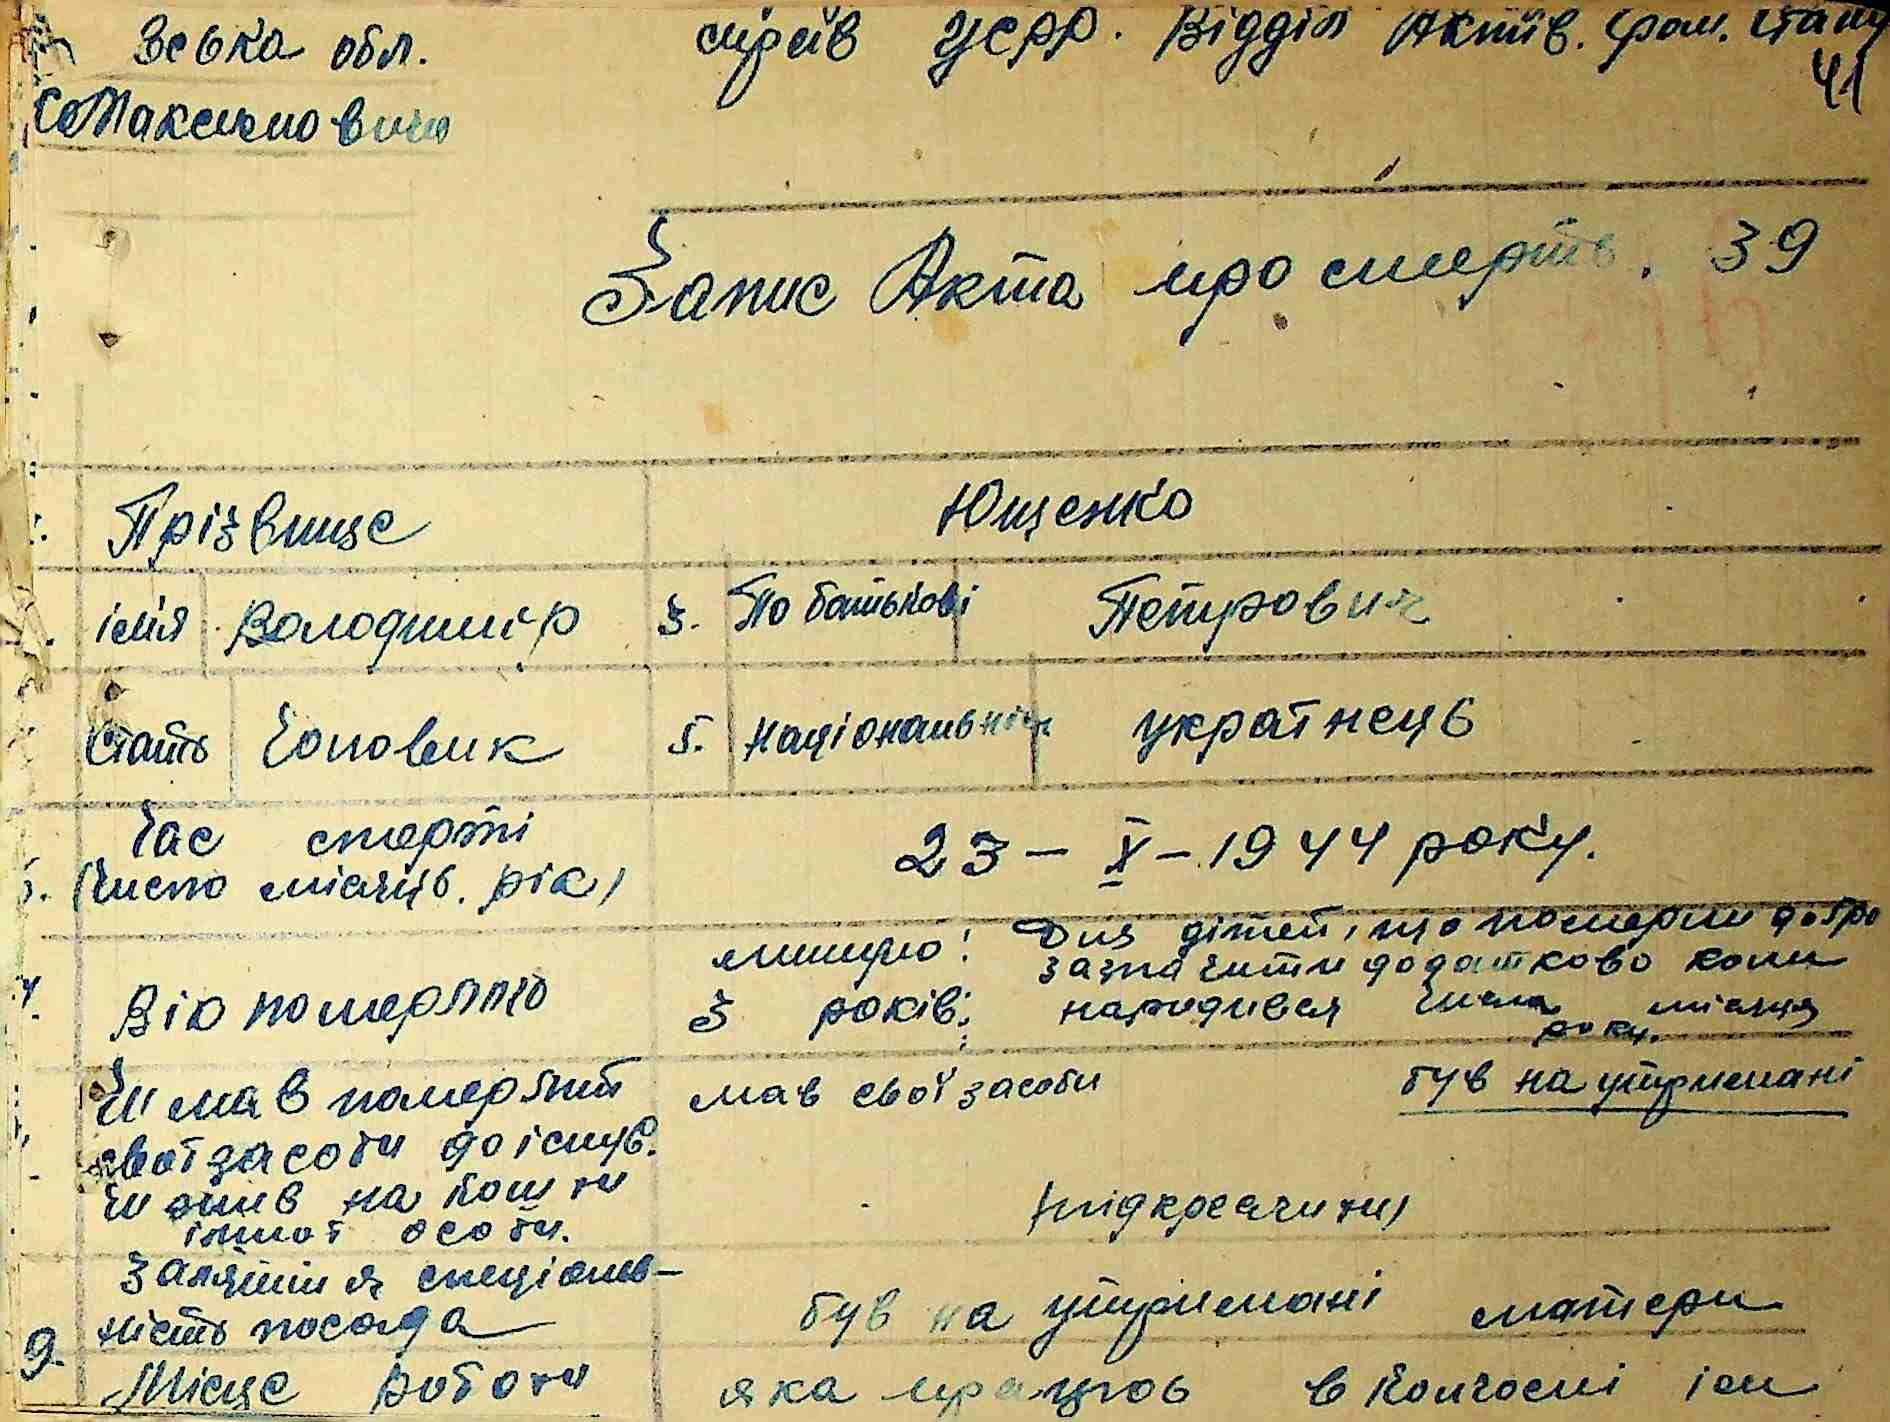 ська обл. справ УСРР. Відділ Актів. гром. стану
41
С Максимовичі
Запис Акта про смерть. 39
Прізвище Ющенко
імя Володимір 3. По батькові Петрович
Стать Чоловик 5. Національність українець
Час смерті
(Число місяць. рік) 23 – X – 1944 року.
минуло: Для дітей, що померли добро
зазначити додатково коли
Вік померлого 3 років; народився числа місяця
року.
Чи мав померлий мав свої засоби був на утримані
свої засоби до існув.
чи жив на кошти (підкреслити)
іншої особи.
Заняття спеціаль-
ність посада був на утримані матери
9. Місце роботи яка працює в колгоспі ім